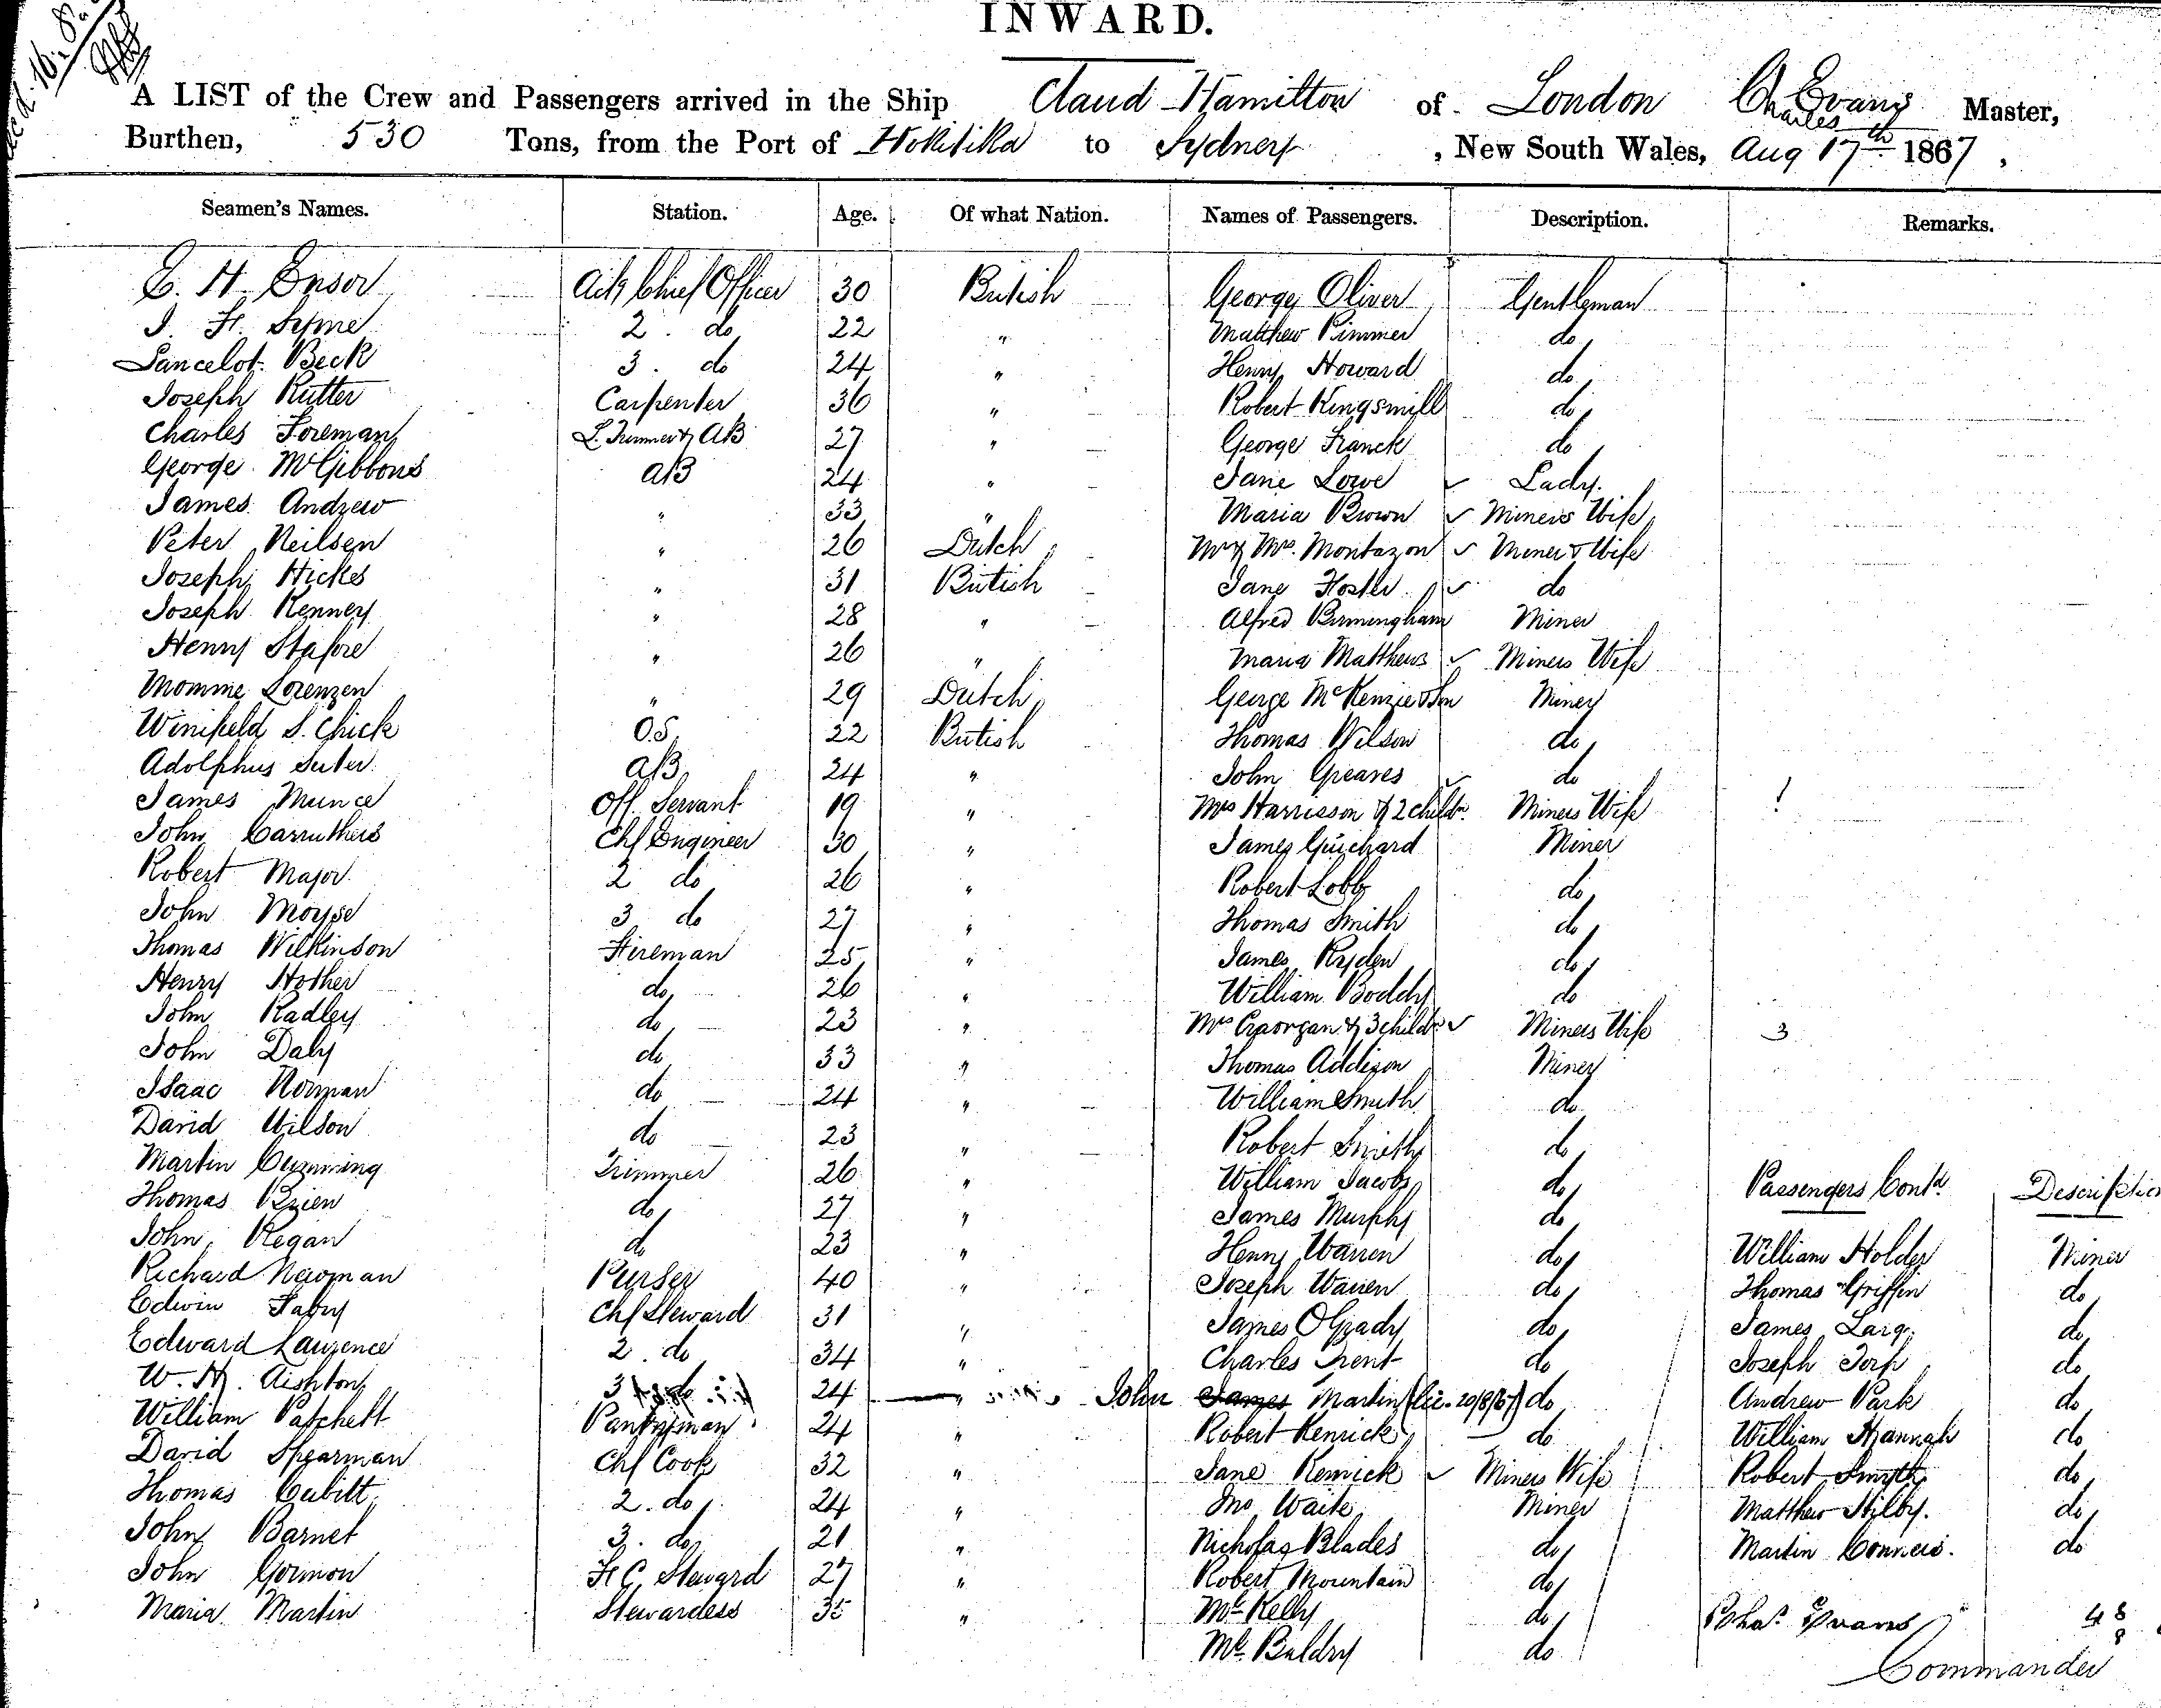 INWARD.
A LIST of the Crew and Passengers arrived in the Ship Claud Hamilton of London Ch Evans Master,
Charles
Burthen, 530 Tons, from the Port of Hokitika to Sydney, New South Wales, Aug 17th 1867,
Seamen's Names. Station. Age. Of what Nation. Names of Passengers. Description. Remarks.
E. H. Ensor Actg Chief Officer 30 British George Oliver Gentleman
J. H. Syme 2. do 22 " Matthew Rimmer do
Lancelot Beck 3. do 24 " Henry Howard do
Joseph Rutter Carpenter 36 " Robert Kingsmill do
Charles Foreman L. Trimmer & AB 27 " George Franck do
George McGibbons AB 24 " Jane Lowe ✓ Lady.
James Andrew " 33 " Maria Brown ✓ Miners Wife
Peter Neilsen " 26 Dutch Mr & Mrs. Montazon ✓ Miner & Wife
Joseph Hickes " 31 British Jane Foster ✓ do
Joseph Kenney " 28 " Alfred Birmingham Miner
Henry Stafore " 26 " Maria Matthews ✓ Miners Wife
Momme Lorenzen " 29 Dutch George McKenzie & Son Miner
Winifield S. Chick O.S. 22 British Thomas Wilson do
Adolphus Suter AB 24 " John Greaves do
James Munce Off. Servant 19 " Mrs Harrisson & 2 childn. ✓ Miners Wife !
John Carruthers Chf Engineer 30 " James Guichard Miner
Robert Major 2 do 26 " Robert Lobb do
John Moyse 3 do 27 " Thomas Smith do
Thomas Wilkinson Fireman 25 " James Ryden do
Henry Hother do 26 " William Boddy do
John Radley do 23 " Mrs Gaorgan & 3 childn ✓ Miners Wife 3
John Daly do 33 " Thomas Addison Miner
Isaac Norman do 24 " William Smith do
David Wilson do 23 " Robert Smith do
Martin Cumming Trimmer 26 " William Jacobs do Passengers Contd. Description
Thomas Brien do 27 " James Murphy do
John Regan do 23 " Henry Warren do William Holder Miner
Richard Newman Purser 40 " Joseph Warren do Thomas Griffin do
Edwin Fabry Chf Steward 31 " James OGrady do James Larg do
Edward Laurence 2. do 34 " Charles Trent do Joseph Torp do
W. H. Aishton 3 do 24 " John James Martin (lic. 20/8/67) do Andrew Park do
William Patchett Pantryman 24 " Robert Kenrick do William Hannah do
David Spearman Chf Cook 32 " Jane Kenrick ✓ Miners Wife Robert Smyth do
Thomas Cubitt 2. do 24 " Jno Waite Miner Matthew Hilby. do
John Barnet 3. do 21 " Nicholas Blades do Martin Conners. do
John Gormon F C Steward 27 " Robert Mountain do
Maria Martin Stewardess 35 " Mr Kelly do Chas. Evans 48
8
Mr. Baldry do Commander